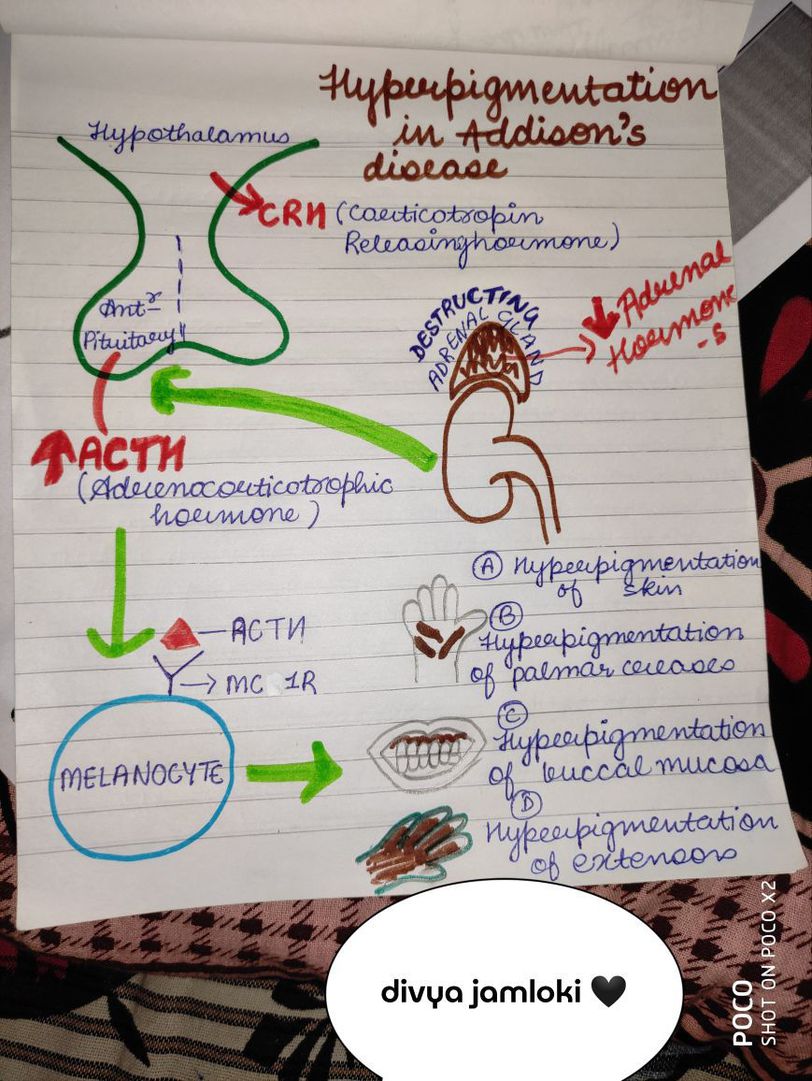 Hyperpigmentation
in Addison's
disease
Hypothalamus
CRH (Corticotropin
Releasing hormone)
Antr
Pituitary
DESTRUCTING
ADRENAL GLAND
↓ Adrenal
Hormone
-s
↑ ACTH
(Adrenocorticotrophic
hormone)
ACTH
MC 1R
MELANOCYTE
Ⓐ Hyperpigmentation
of skin
Ⓑ
Hyperpigmentation
of palmar creases
Ⓒ
Hyperpigmentation
of buccal mucosa
Ⓓ
Hyperpigmentation
of extensors
divya jamloki 🖤
POCO
SHOT ON POCO X2